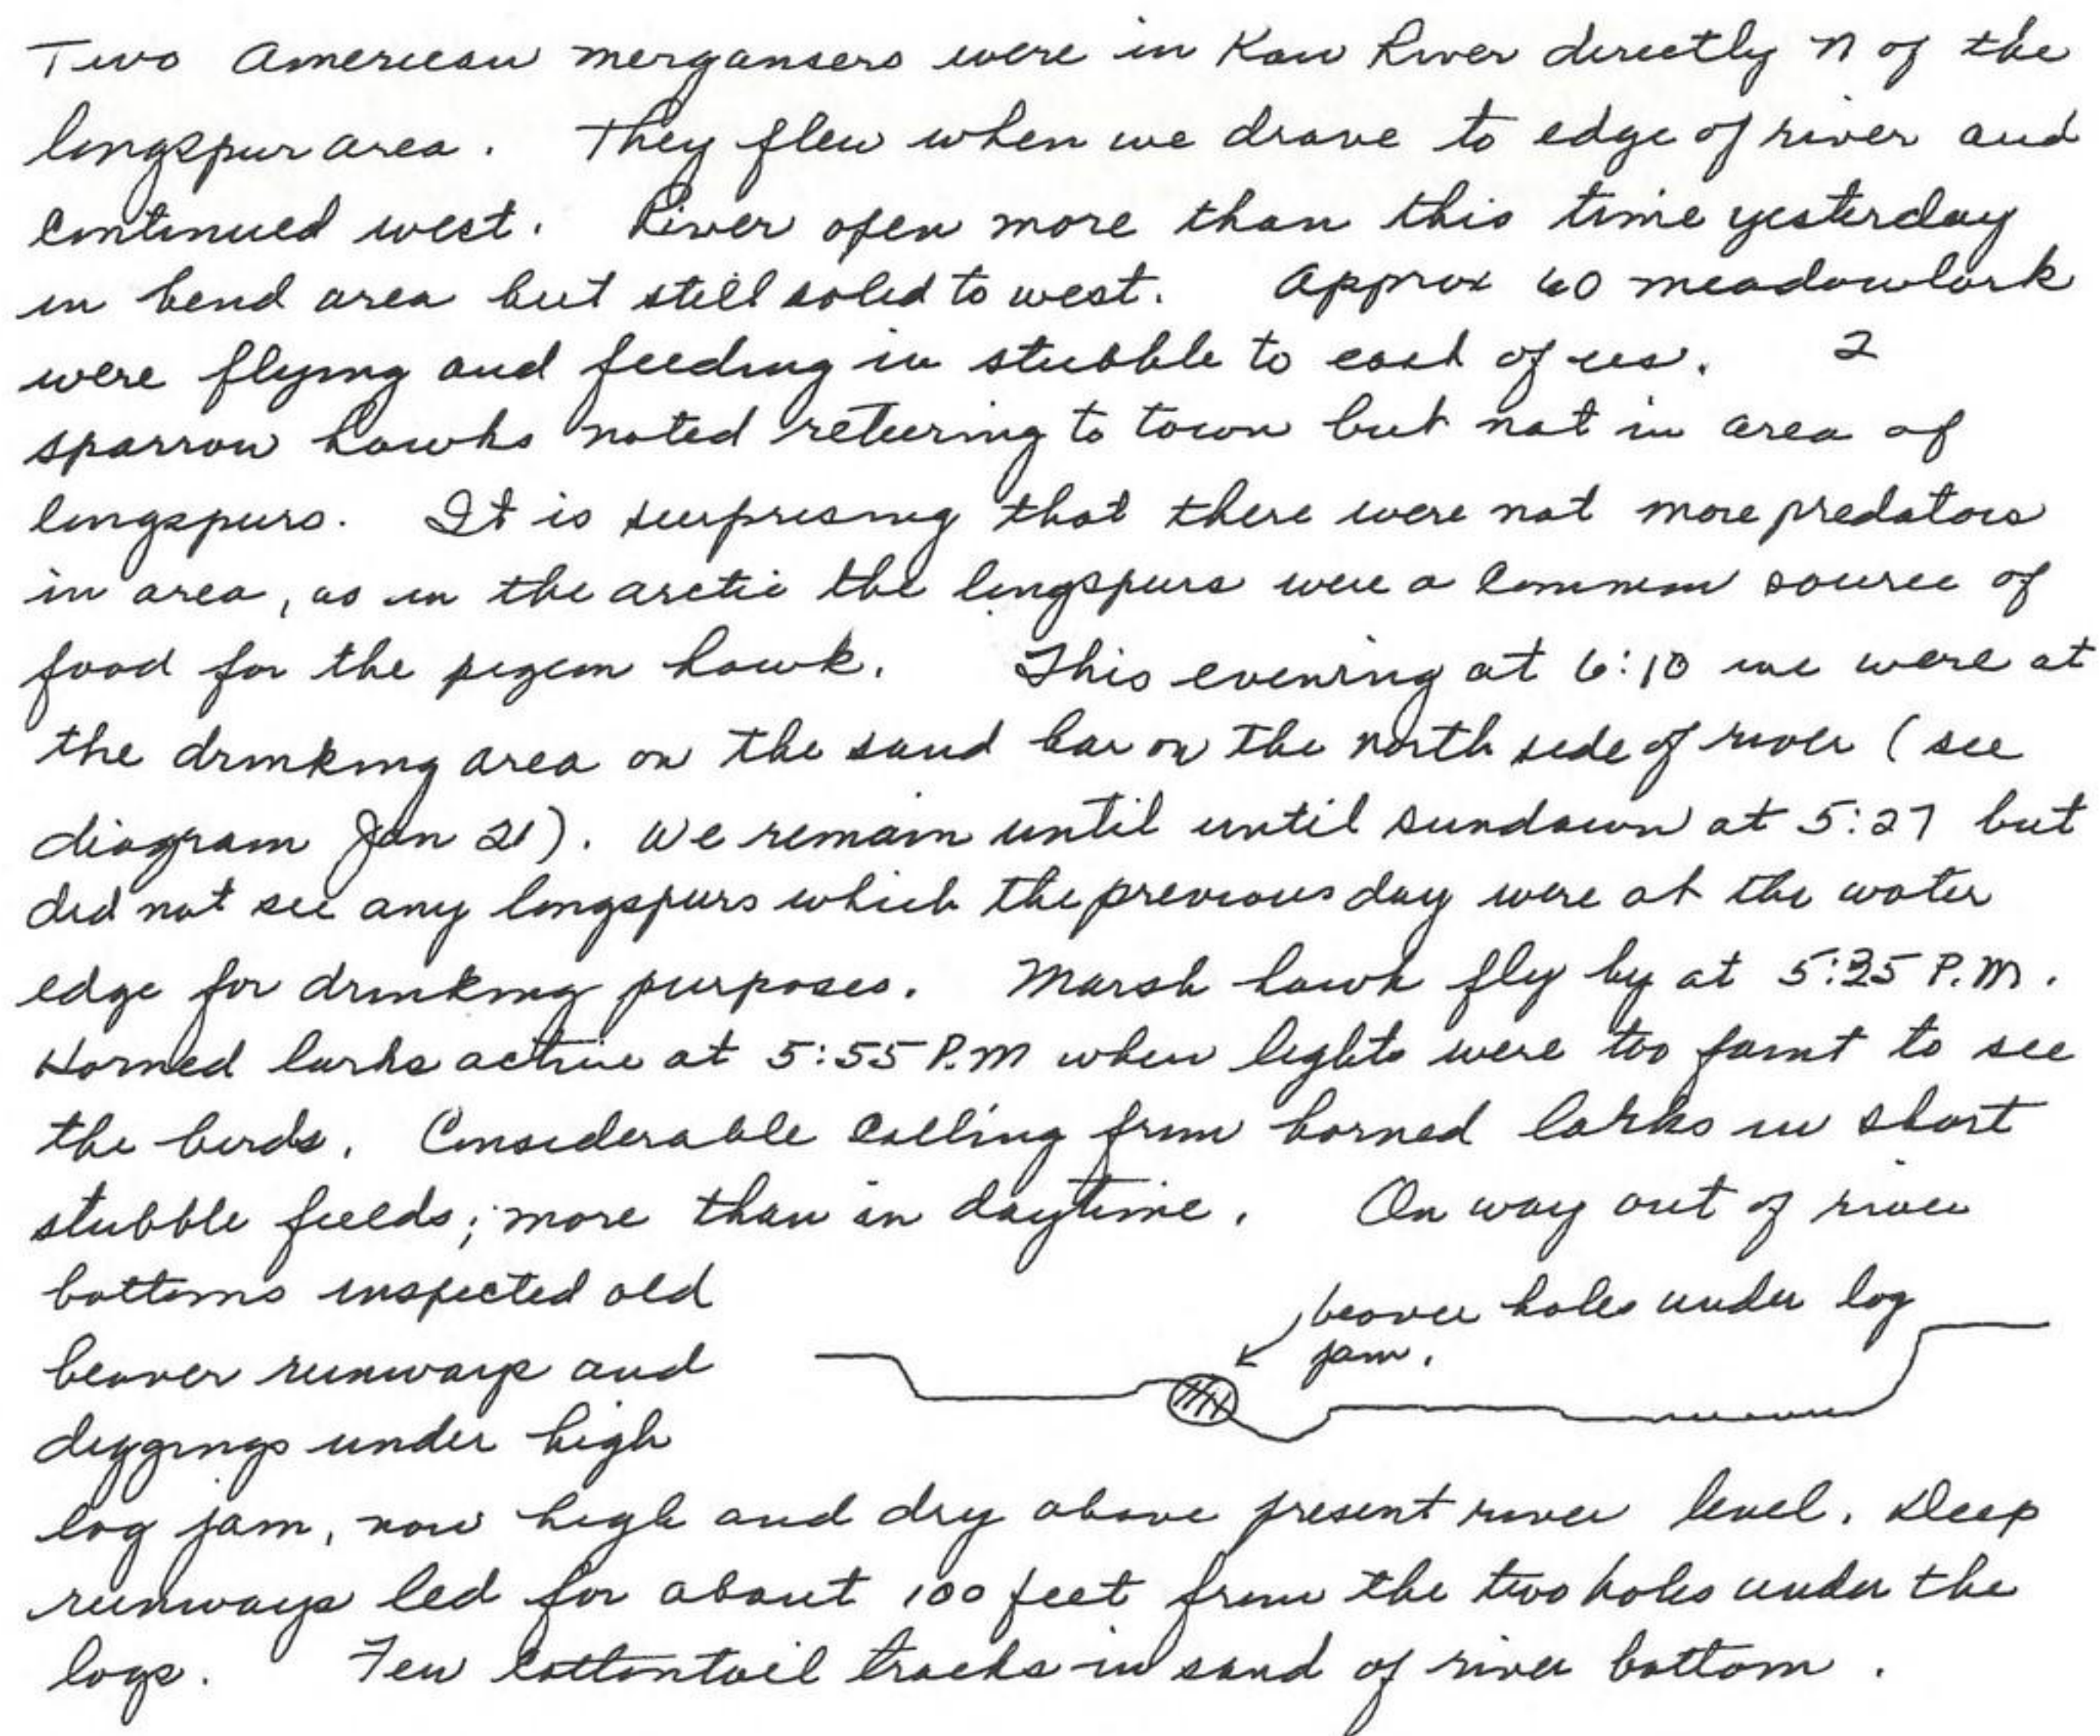 Two American mergansers were in Kaw River directly N of the
longspur area. They flew when we drove to edge of river and
continued west. River open more than this time yesterday
in bend area but still solid to west. Approx 60 meadowlark
were flying and feeding in stubble to east of us. 2
sparrow hawks noted returing to town but not in area of
longspurs. It is surprising that there were not more predators
in area, as in the arctic the longspurs were a common source of
food for the pigeon hawk. This evening at 6:10 we were at
the drinking area on the sand bar on the north side of river (see
diagram Jan 21). We remain until until sundown at 5:27 but
did not see any longspurs which the previous day were at the water
edge for drinking purposes. Marsh hawk fly by at 5:35 P.M.
Horned larks active at 5:55 P.M when lights were too faint to see
the birds. Considerable calling from horned larks in short
stubble fields; more than in daytime. On way out of river
bottoms inspected old
beaver runways and
diggings under high
beaver holes under log
jam.
log jam, now high and dry above present river level. Deep
runways led for about 100 feet from the two holes under the
logs. Few cottontail tracks in sand of river bottom.